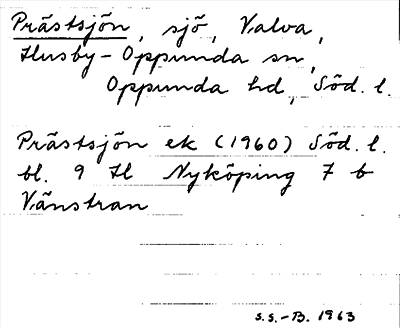 Prästsjön, sjö, Valva,
Husby-Oppunda sn,
Oppunda hd, Söd. l.
Prästsjön ek (1960) Söd. l.
bl. 9 H Nyköping 7 b
Vänstran
S.S.-B. 1963